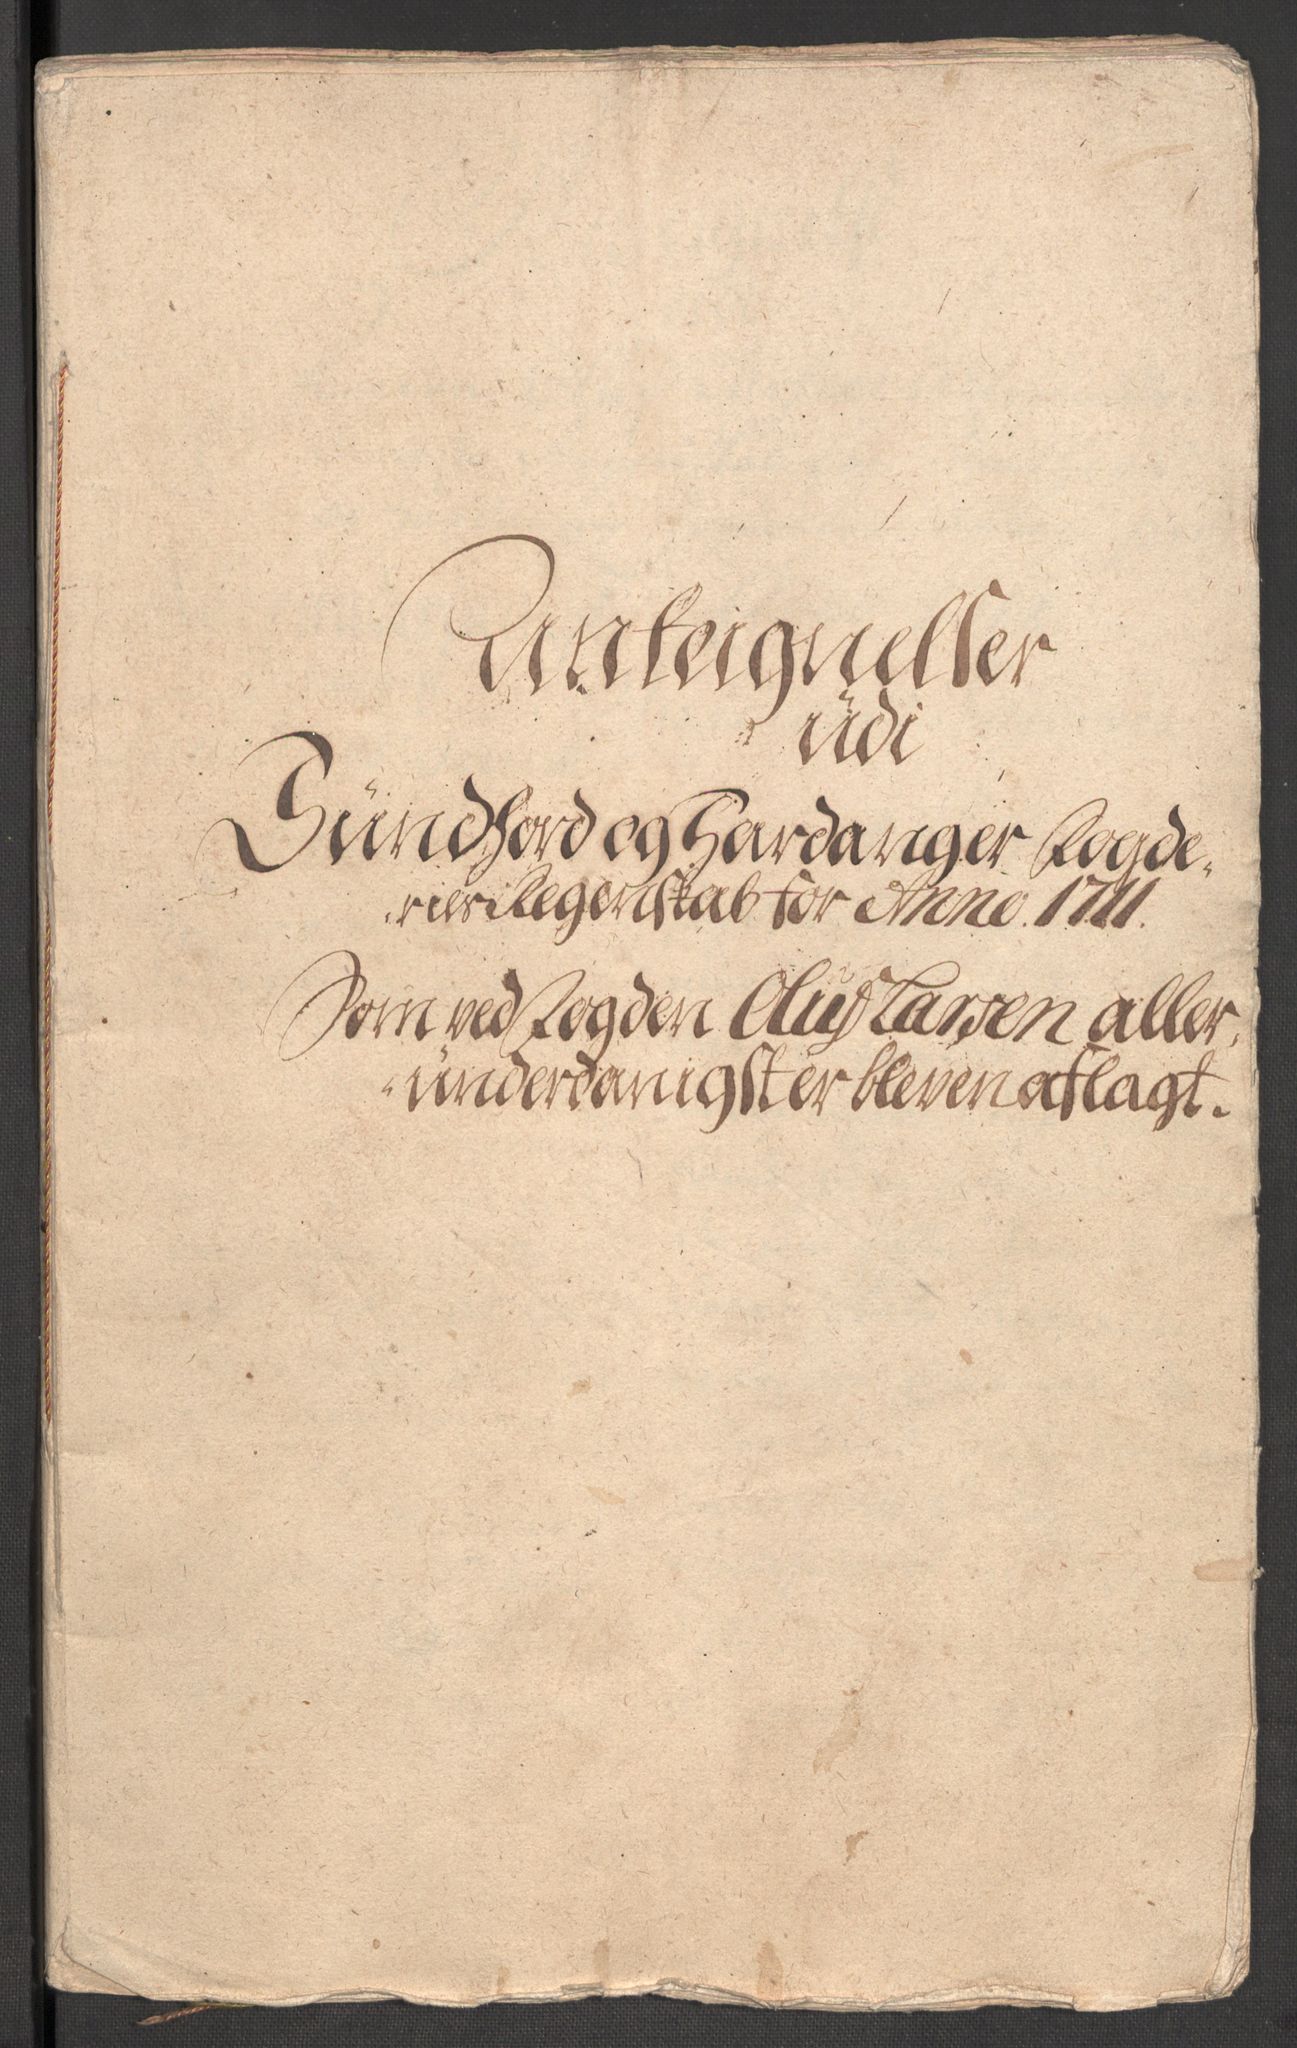 Anteignelser
udi
Sundhord og Hardanger Fogde-
ries Regenskab for Anno. 1711.
Som ved Fogden Oluf Larsen aller-
underdanigst er bleven aflagt.